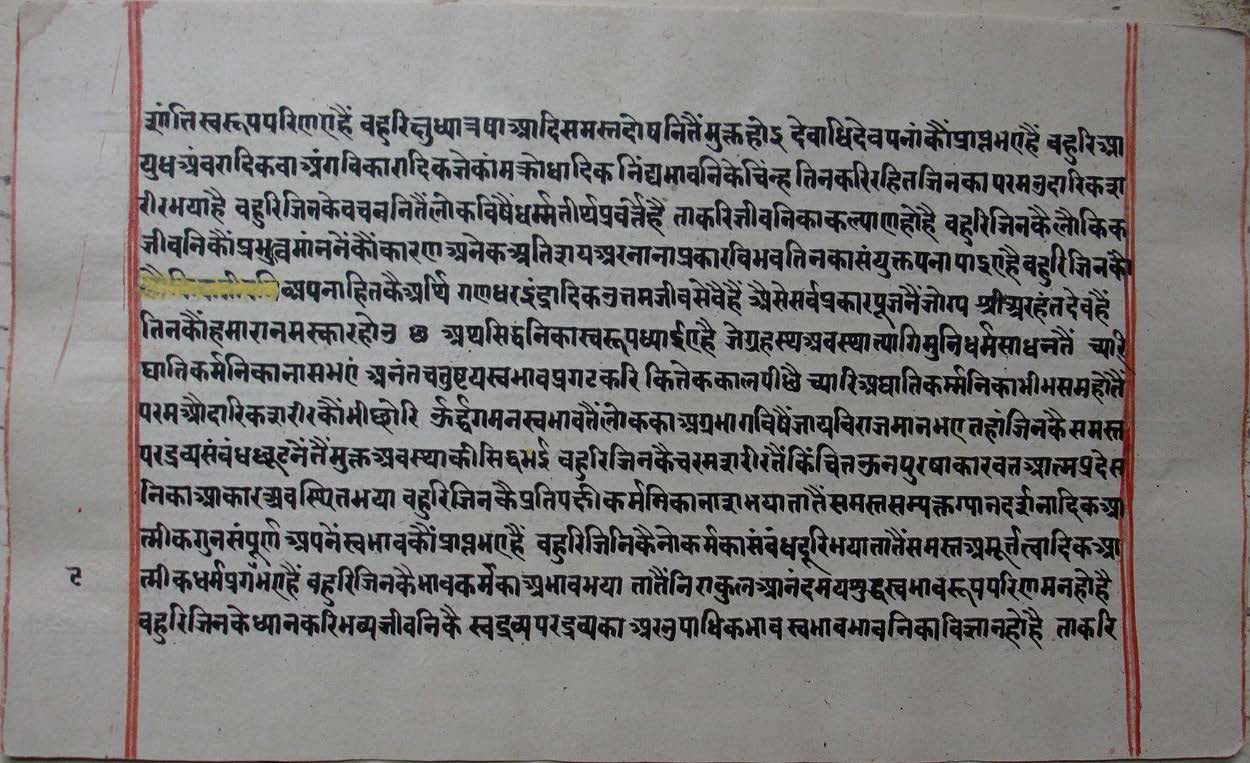 शांतिस्वरूपपरिणएहैं बहुरिक्षुधात्रषाआदिसमस्तदोषनितैंमुक्तहोइ देवाधिदेवपनांकौंप्राप्तभएहैं बहुरिआ
युधअंबरादिकवाअंगविकारादिकजेकांमक्रोधादिक निंद्यभावनिकेचिंन्ह तिनकरिरहितजिनका परमउदारिकशा
रीरभयाहै बहुरिजिनकेवचननितैंलोकविषैंधर्म्मतीर्थप्रवर्त्तैहै ताकरिजीवनिकाकल्याणहोहै बहुरिजिनकैलौकिक
जीवनिकौंप्रभुत्वमांननेंकौंकारण अनेकअतिशयअरनानाप्रकारविभवतिनकासंयुक्तपनापाइएहैबहुरिजिनकौं
व्यपनाहितकैअर्थि गणधरइंद्रादिकउत्तमजीवसेवैहैं अैसेसर्वप्रकारपूजनैंजोग्य श्रीअरहंतदेवहैं
तिनकौंहमारानमस्कारहोउ ७ अथसिद्धनिकास्वरूपध्याईएहै जेग्रहस्थअवस्थात्यागिमुनिधर्मसाधनतैं च्यारि
घातिकर्मनिकानासभएं अनंतचतुष्टयस्वभावप्रगटकरि कित्तेककालपीछै च्यारिअघातिकर्म्मनिकाभीभसमहोतैं
परमऔदारिकशरीरकौंभीछोरि ऊर्द्धगमनस्वभावतैंलोककाअग्रभागविषैंजायविराजमानभए तहांजिनकैसमस्त
परद्रव्यसंबंधछूटनैंतैंमुक्तअवस्थाकीसिद्धिभई बहुरिजिनकैचरमशरीरतैंकिंचितऊनपुरषाकारवतआत्मप्रदेस
निकाआकारअवस्थितभया बहुरिजिनकैप्रतिपक्षीकर्मनिकानाशभयातातैंसमस्तसम्यक्तग्यानदर्शनादिकआ
त्मीकगुनसंपूर्ण अपनेंस्वभावकौंप्राप्तभएहैं बहुरिजिनिकैनोकर्मकासंबंधदूरिभयातातैंसमस्तअमूर्त्तत्वादिकआ
त्मीकधर्मप्रगभएहैं बहुरिजिनकैभावकर्मकाअभावभया तातैंनिराकुलआनंदमयशुद्धस्वभावरूपपरिणमनहोहै
बहुरिजिनकेध्यानकरिभव्यजीवनिकै स्वद्रव्यपरद्रव्यका अरउपाधिकभावस्वभावभावनिकाविज्ञानहोहै ताकरि